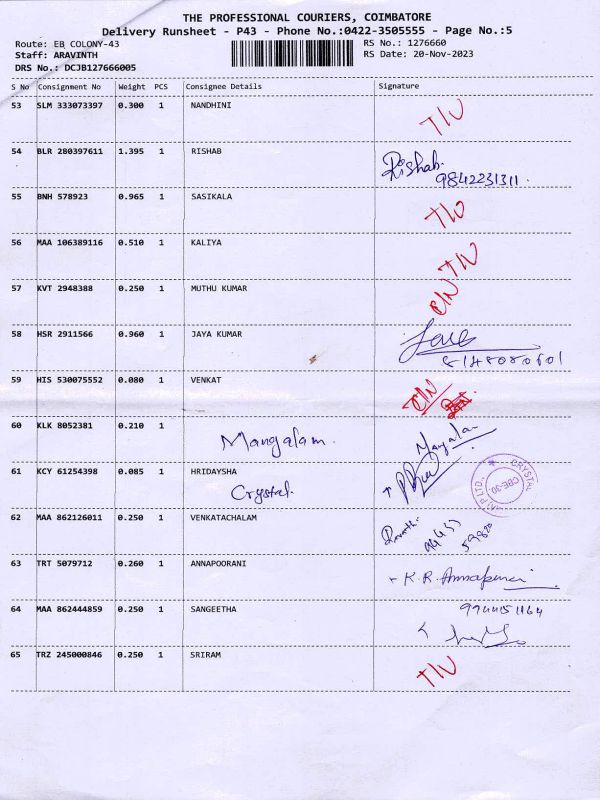 THE PROFESSIONAL COURIERS, COIMBATORE
Delivery Runsheet - P43 - Phone No.:0422-3505555 - Page No.:5
Route: EB COLONY-43 RS No.: 1276660
Staff: ARAVINTH RS Date: 20-Nov-2023
DRS No.: DCJB127666005
S No Consignment No Weight PCS Consignee Details Signature
53 SLM 333073397 0.300 1 NANDHINI
54 BLR 280397611 1.395 1 RISHAB Rishab.
9842231311.
55 BNH 578923 0.965 1 SASIKALA
56 MAA 106389116 0.510 1 KALIYA
57 KVT 2948388 0.250 1 MUTHU KUMAR
58 HSR 2911566 0.960 1 JAYA KUMAR
8148080601
59 HIS 530075552 0.080 1 VENKAT
60 KLK 8052381 0.210 1 Mangalam. Mangalam
61 KCY 61254398 0.085 1 HRIDAYSHA
Crystal. CRYSTAL CBE-30. P LTD.,
62 MAA 862126011 0.250 1 VENKATACHALAM
63 TRT 5079712 0.260 1 ANNAPOORANI K.R.
64 MAA 862444859 0.250 1 SANGEETHA 9944151164
65 TRZ 245000846 0.250 1 SRIRAM